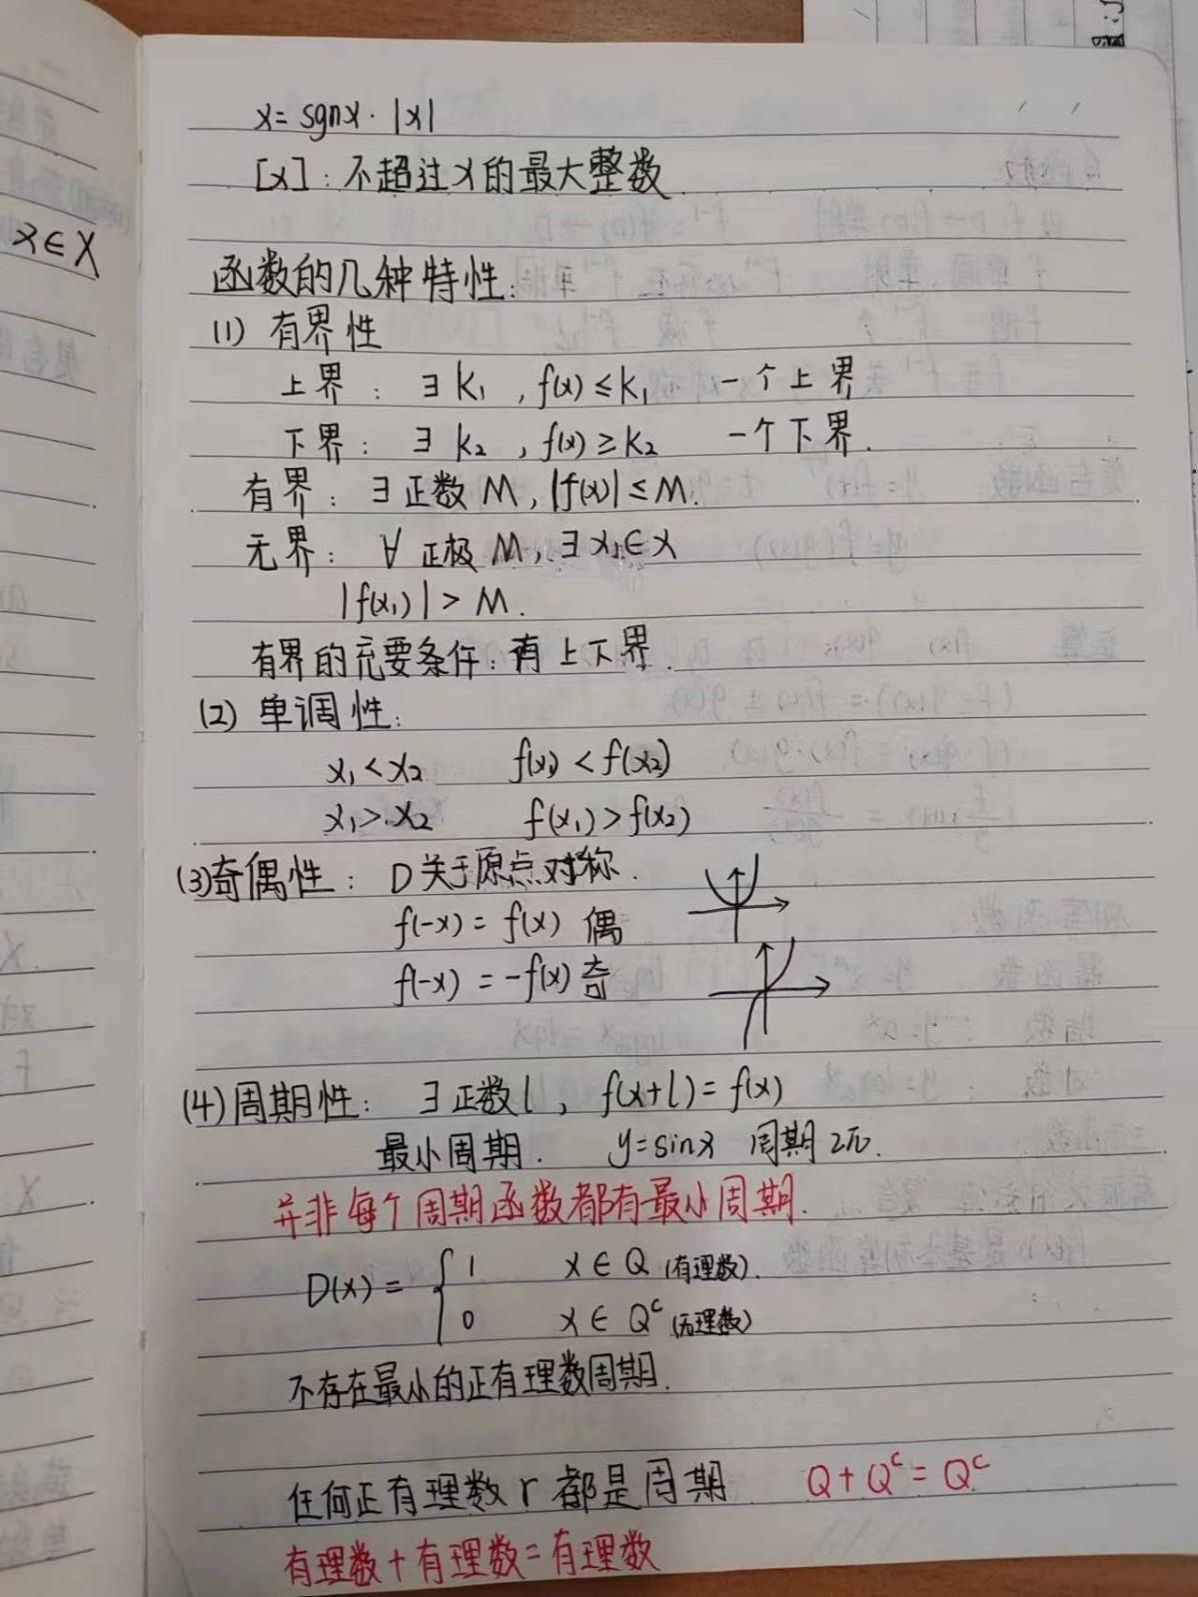 x = sgnx · |x|
[x]：不超过x的最大整数.
x∈X
函数的几种特性：
(1) 有界性
上界： ∃ K₁ , f(x) ≤ K₁ 一个上界
下界： ∃ K₂ , f(x) ≥ K₂ 一个下界.
有界： ∃ 正数 M, |f(x)| ≤ M.
无界： ∀ 正极 M, ∃ x₁ ∈ X
|f(x₁)| > M.
有界的充要条件：有上下界.
(2) 单调性：
x₁ < x₂ f(x₁) < f(x₂)
x₁ > x₂ f(x₁) > f(x₂)
(3) 奇偶性： D关于原点对称.
f(-x) = f(x) 偶
f(-x) = -f(x) 奇
(4) 周期性： ∃ 正数 l , f(x+l) = f(x)
最小周期. y = sinx 周期 2π.
并非每个周期函数都有最小周期.
D(x) = { 1 x ∈ Q (有理数).
0 x ∈ Qᶜ (无理数)
不存在最小的正有理数周期.
任何正有理数 r 都是周期 Q + Qᶜ = Qᶜ
有理数 + 有理数 = 有理数